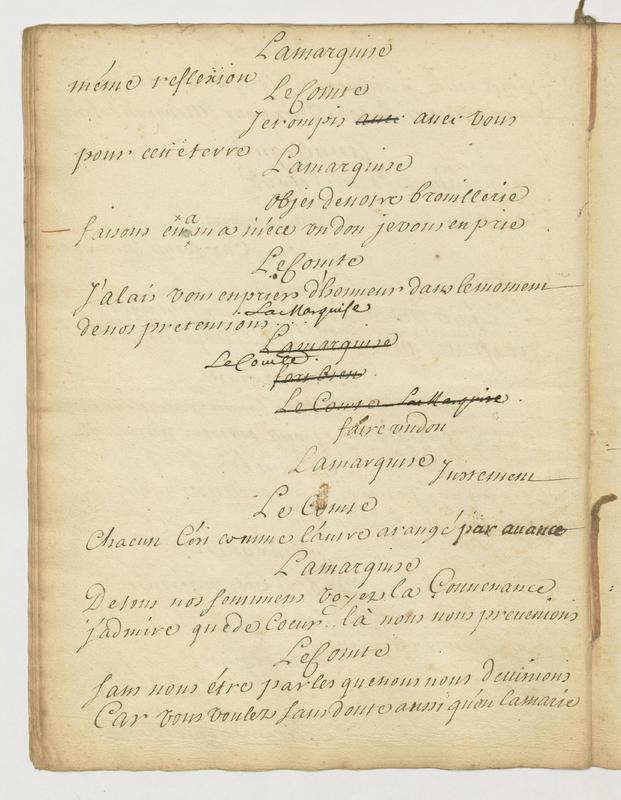 Lamarquise
méme reflexion
LeComte
Jerompis avec avec vous
pour cette terre
Lamarquise
objet denotre brouillerie
faisons en a ma niéce undon jevous enprie
LeComte
J'alais vous enprier d'honneur dans lemoment
La Marquise
denos pretentions.
Lamarquise
Le Comte
fort bien
Le Comte La Marquise
faire undon
Lamarquise Justement
Le Comte
Chacun l'autre arangé par avance
Lamarquise
Detous nos sentimens voyez la Convenance
j'admire quede Coeur là nous nous prevenions
LeComte
sans nous étre parles quenous nous devinions
Car vous voulez sansdoute aussi qu'on lamarie